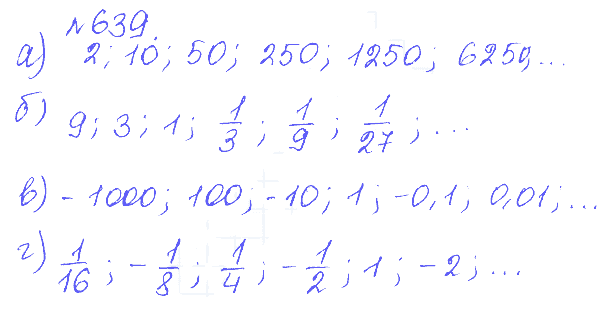 № 639.
а) 2; 10; 50; 250; 1250; 6250; ...
б) 9; 3; 1; 1/3; 1/9; 1/27; ...
в) -1000; 100; -10; 1; -0,1; 0,01; ...
г) 1/16; -1/8; 1/4; -1/2; 1; -2; ...